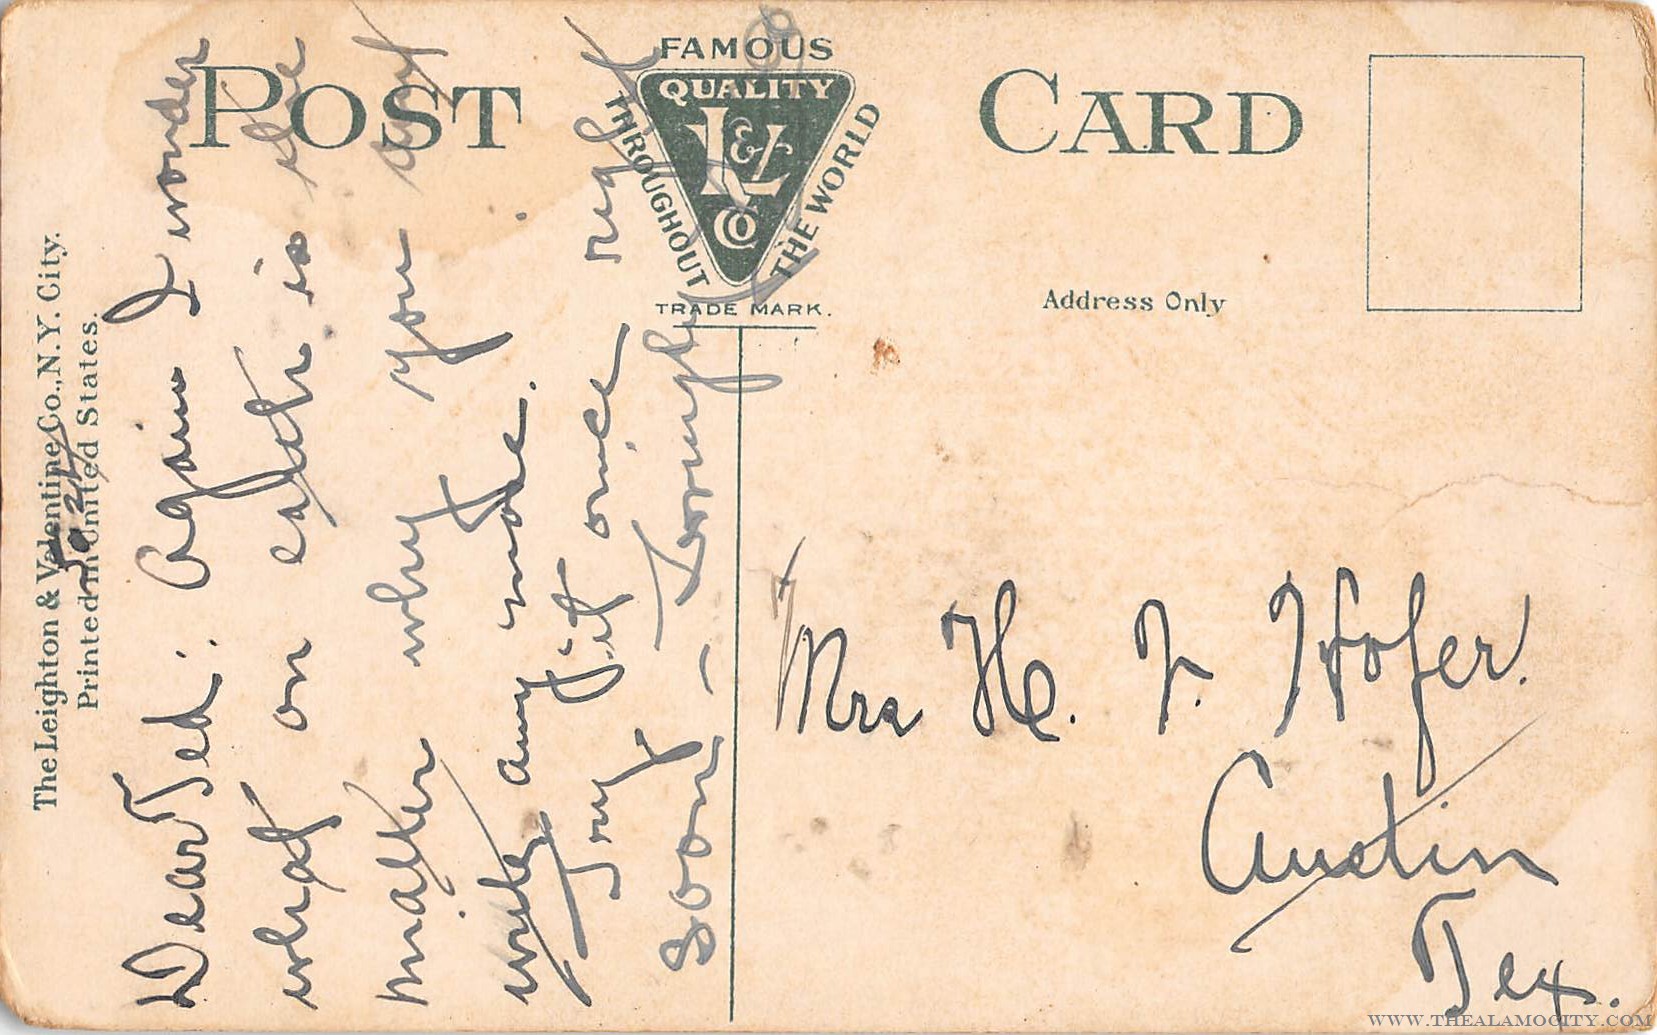 POST CARD
FAMOUS
QUALITY
L & V
CO
THROUGHOUT THE WORLD
TRADE MARK.
Address Only
The Leighton & Valentine Co., N.Y. City.
Printed in United States.
Dear Ted: Again I wonder
what on earth is the
matter why you
write any more.
Try it once right
soon – Lovingly
Mrs H. F. Hofer.
Austin
Tex.
WWW.THEALAMOCITY.COM